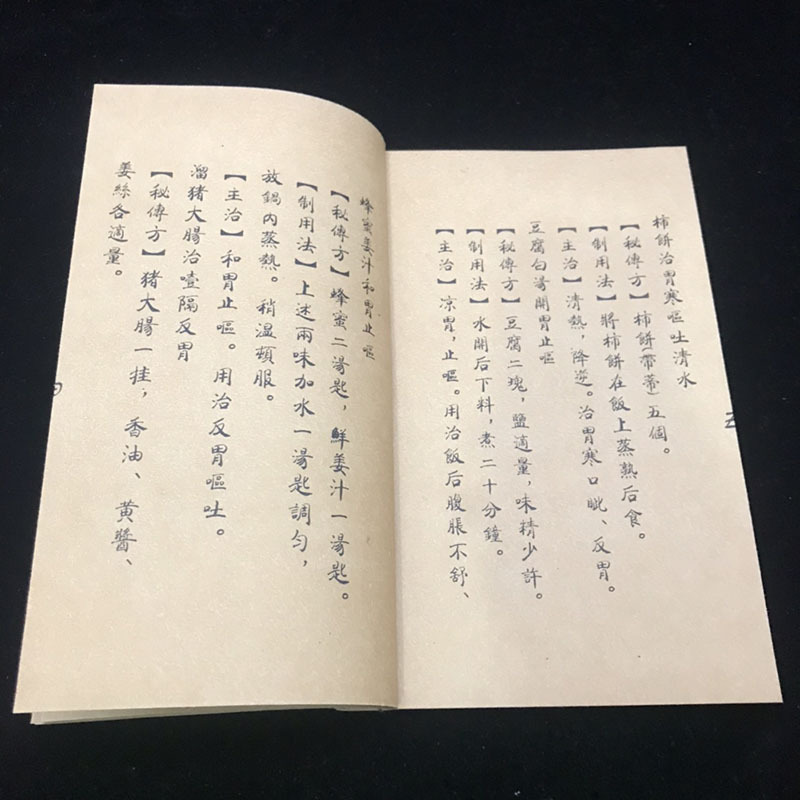 柿餅治胃寒嘔吐清水
【秘傳方】柿餅(帶蒂)五個。
【制用法】將柿餅在飯上蒸熟后食。
【主治】清熱，降逆。治胃寒口吡、反胃。
豆腐白湯開胃止嘔
【秘傳方】豆腐二塊，鹽適量，味精少許。
【制用法】水開后下料，煮二十分鐘。
【主治】凉胃，止嘔。用治飯后腹脹不舒、
蜂蜜姜汁和胃止嘔
【秘傳方】蜂蜜二湯匙，鮮姜汁一湯匙。
【制用法】上述兩味加水一湯匙調勻，
放鍋內蒸熱。稍溫頓服。
【主治】和胃止嘔。用治反胃嘔吐。
溜猪大腸治噎隔反胃
【秘傳方】猪大腸一挂，香油、黃醬、
姜絲各適量。